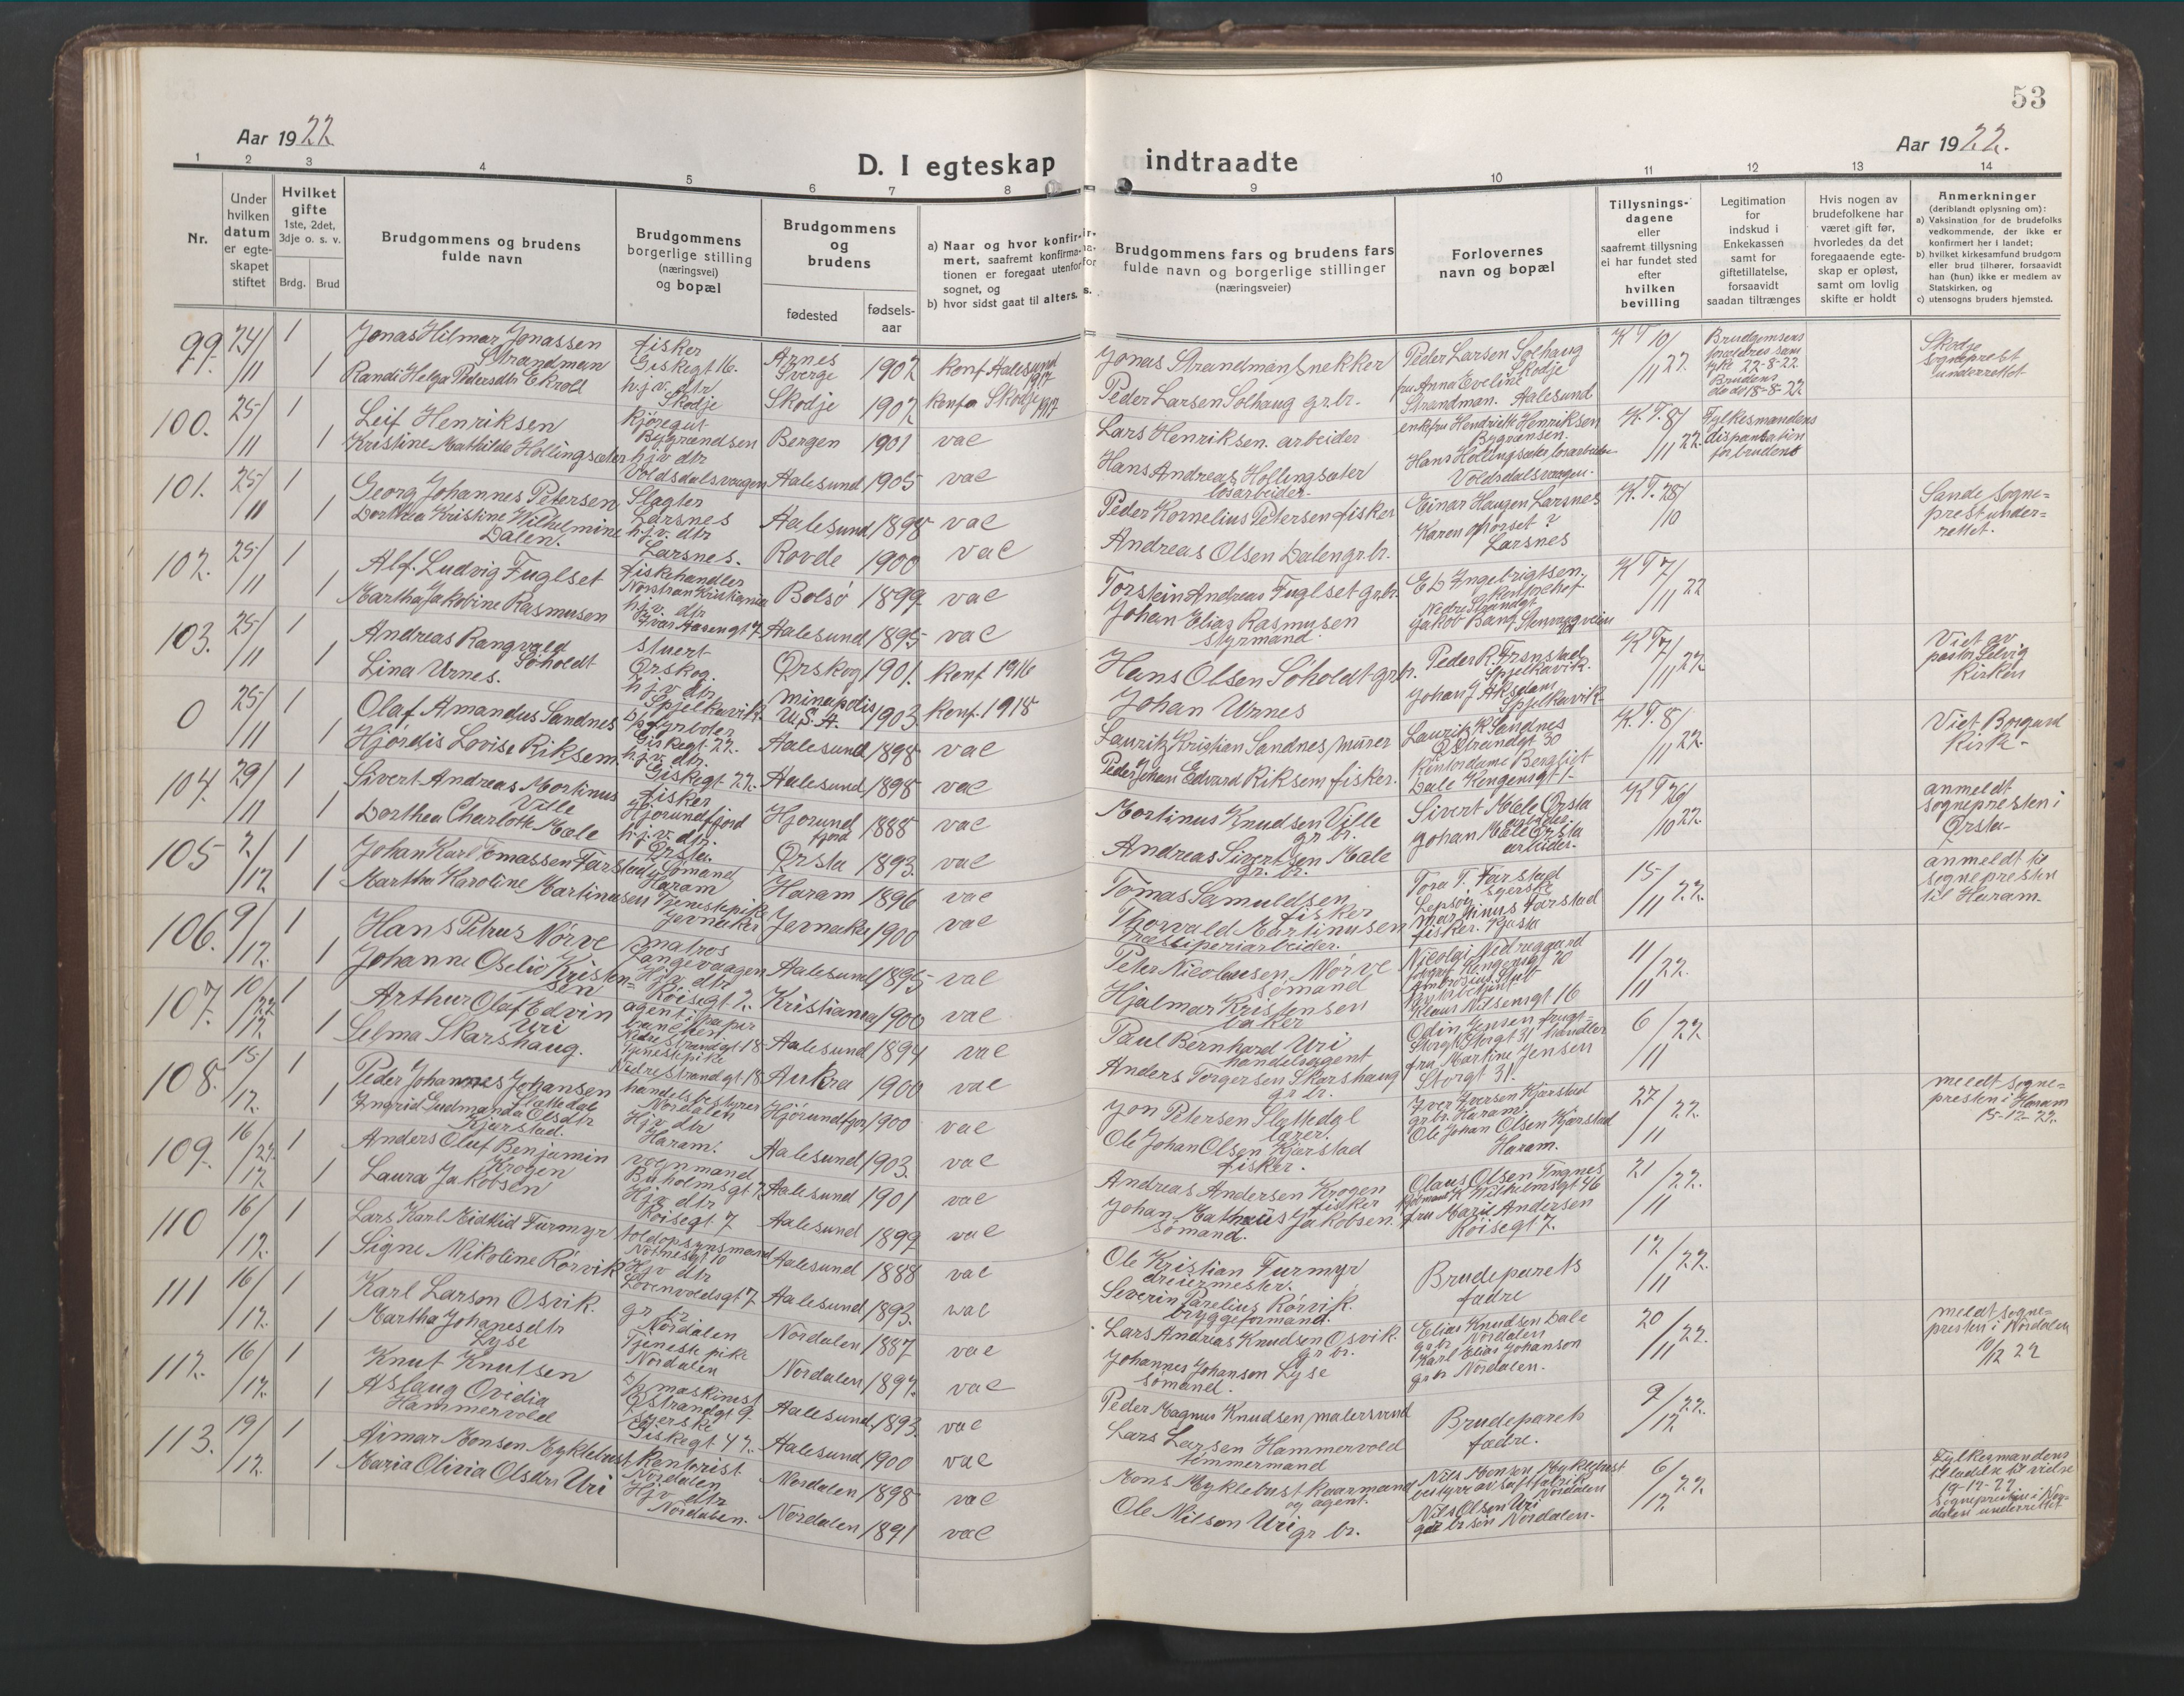 53
Aar 1922
D. I egteskap
indtraadte
Aar 1922.
1 2 3 4 5 6 7 8 9 10 11 12 13 14
Nr.
Under hvilken datum er egteskapet stiftet
Hvilket gifte 1ste, 2det, 3dje o. s. v.
Brdg. Brud
Brudgommens og brudens fulde navn
Brudgommens borgerlige stilling (næringsvei) og bopæl
Brudgommens og brudens
fødested
fødsels-aar
a) Naar og hvor konfirmert, saafremt konfirmationen er foregaat utenfor sognet, og
b) hvor sidst gaat til alters.
Brudgommens fars og brudens fars fulde navn og borgerlige stillinger (næringsveier)
Forlovernes navn og bopæl
Tillysnings-dagene eller saafremt tillysning ei har fundet sted efter hvilken bevilling
Legitimation for indskud i Enkekassen samt for giftetillatelse, forsaavidt saadan tiltrænges
Hvis nogen av brudefolkene har været gift før, hvorledes da det foregaaende egteskap er opløst, samt om lovlig skifte er holdt
Anmerkninger (deriblandt oplysning om):
a) Vaksination for de brudefolks vedkommende, der ikke er konfirmert her i landet;
b) hvilket kirkesamfund brudgom eller brud tilhører, forsaavidt han (hun) ikke er medlem av Statskirken, og
c) utensogns bruders hjemsted.
99. 24/11 1 Jonas Hilmar Jonassen Strandman fisker Giskegt 16. Arnes Sverge 1902 konf Aalesund 1917 Jonas Strandman snekker Peder Larsen Solhaug Skodje K T 10/11 22. Brudgomsens forældres sam tykke 22-8-22. Skodje sogneprest underrettet
1 Randi Helga Pedersdtr Ekroll h.j.v. dtr Skodje Skodje 1902 konfa Skodje 1917 Peder Larsen Solhaug gr.br. fru Anna Eveline Strandman. Aalesund Brudens do do 18-8-22
100. 25/11 1 Leif Henriksen Kjøregut Bygrændsen Bergen 1901 vac Lars Henriksen. arbeider enkefru Hendrikke Henriksen Bygrænsen. K. T. 8/11 22. Fylkesmandens dispensation for brudens
1 Kristine Mathilde Hollingsæter h.j.v. dtr Voldsdalsvaagen Aalesund 1905 vac Hans Andreas Hollingsæter løsarbeider. Hans Hollingsæter løsarbeider Voldsdalsvaagen.
101. 25/11 1 Georg Johannes Petersen Slagter Larsnes Aalesund 1898 vac Peder Kornelius Petersen fisker Einar Haugen Larsnes K. T. 28/10 Sande sogneprest underrettet.
1 Dorthea Kristine Wilhelmine Dalen. h.j.v. dtr Larsnes. Rovde 1900 vac Andreas Olsen Dalen gr.br. Larsnes
102. 25/11 1 Alf. Ludvig Fuglset fiskehandler Bolsø 1899 vac Torstein Andreas Fuglset gr.br. K T 7/11 22
1 Martha Jakobine Rasmusen h.j.v. dtr Ivar Aasengt 7 Aalesund 1895 vac Johan Elias Rasmusen styrmand.
103. 25/11 1 Andreas Rangvald Søholdt stuert Ørskog. Ørskog 1901. konf 1916 Hans Olsen Søholdt gr.br. Spjelkavik. K T 7/11 22. Viet av pastor Selvig kirken
1 Lina Urnes. h.j.v. dtr Spjelkavik. Minapolis U.S.A. 1903 konf. 1918 Johan Urnes Johan J Aksdam Spjelkavik
0 25/11 1 Olaf Amandus Sandnes D/p fyrbøter Giskegt. 22. Aalesund 1898 vac Lauritz Kristian Sandnes murer Lauritz K Sandnes Ø Strandgt 30 K. T. 8/11 22. Viet Borgund kirk-
1 Hjørdis Lovise Riksem h.j.v. dtr. Giskegt 22. Aalesund 1898 vac Peder Johan Edvard Riksem fisker. Kontordame Bergliot Dale Kongensgt 1.
104. 29/11 1 Sivert Andreas Mortinus Ville fisker Hjorundfjord Hjorundfjord 1888 vac Mortinus Knudsen Ville gr br. Sivert Mæle Ørsta arbeider K T 26/10 22. anmeldt sognepresten i Ørsta-
1 Dorthea Charlotte Mæle h.j.v. dtr. Ørsta. Ørsta 1893. vac Andreas Sivertsen Mæle gr. br. Johan Mæle Ørsta arbeider.
105 2/12 1 Johan Karl Tomassen Farstad Sømand Haram Haram 1896 vac Tomas Samuldsen fisker Tora T. Farstad syerske Lepsøy 15/11 22. anmeldt til sognepresten til Haram.
1 Martha Karoline Martinusen Tjenestepike Jernaker Jernaker 1900 vac Thorvald Martinusen Martinus Farstad fisker.
106. 9/12. 1 Hans Petrus Nørve Matros Langevaagen Aalesund 1895 vac Peter Nicolaisen Nørve sømand Nicolai Nedregaard Kongensgt 30 11/11 22.
1 Johanne Oselie Kristensen Hjv dtr Røisegt 2. Kristiania 1900 vac Hjalmar Kristensen baker Klaus Nilsensgt 16
107. 10/12 22 1 Arthur Olaf Edvin Uri agent i papir branchen Nedre Strandgt 18 Aalesund 1894 vac Paul Bernhard Uri handelsagent Odin Jensen frugthandler Storgt 31 6/11 22.
1 Selma Skarshaug. Tjenestepike Nedre Strandgt 18 Aukra 1900 vac Anders Torgersen Skarshaug gr br. fru Martine Jensen Storgt 31.
108. 15/12. 1 Peder Johannes Johansen Slettedal handelsbestyrer Nordalen Hjørundfjor 1900 vac Jon Petersen Slettedal lærer. Iver Iversen Kjærstad gr.br. Haram. 27/11 22. meldt sognepresten i Haram 15-12-22.
1 Ingrid Gudmunda Olsdtr Kjærstad. Hjv dtr Haram. Aalesund 1903. vac Ole Johan Olsen Kjærstad fisker. Ole Johan Olsen Kjærstad Haram.
109. 16/12 22 1 Anders Oluf Benjamin Krogen vognmand Buholmsgt 7 Aalesund 1901 vac Andreas Andersen Krogen fisker Olaus Olsen Tugnes K Wilhelmsgt 46 21/11 22.
1 Laura Jakobsen Hjv dtr Røisegt. 7 Aalesund 1899 vac Johan Mathæus Jakobsen. sømand. fru Marie Andersen Røisegt 7.
110 16/12. 1 Lars Karl Eidklid Furmyr toldopsynsmand Notenesgt 10 Aalesund 1888 vac Ole Kristian Furmyr dreiermester. Brudeparets fædre 12/11 22.
1 Signe Nikoline Rørvik Hjv dtr Løvenvoldsgt 7 Aalesund 1893. vac Severin Parelius Rørvik. bryggeformand.
111 16/12. 1 Karl Larsen Osvik. gr br Nordalen Nordalen 1887 vac Lars Andreas Knudsen Osvik. gr br. Elias Knudsen Dale gr br Nordalen 20/11 22. meldt sognepresten i Nordalen 11/12 22
1 Martha Johanesdtr Lyse Tjenestepike Nordalen Nordalen 1897. vac Johannes Johanson Lyse sømand. Karl Elias Johanson gr br Nordalen.
112. 16/12. 1 Knut Knutsen D/p maskinist Ø Strandgt 9. Aalesund 1893. vac Peder Magnus Knudsen malersvend Brudeparets fædre. 9/12 22.
1 Aslaug Ovedia Hammervold syerske Giskegt. 42. Aalesund 1900 vac Lars Larsen Hammervold tømmermand
113. 19/12. 1 Aimar Monsen Myklebust Kontorist Nordalen Nordalen 1898 vac Mons Myklebust kaarmand og agent. Nils Monsen Myklebust bestyrer av saftfabrik Nordalen 6/12 22. Fylkesmandens tilladelse til vielse 19-12-22 sognepresten i Nordalen underrettet
1 Maria Olivia Olsdtr Uri Hjv dtr Nordalen. Nordalen 1891 vac Ole Nilsen Uri gr br. Nils Olsen Uri gr br søn Nordalen.